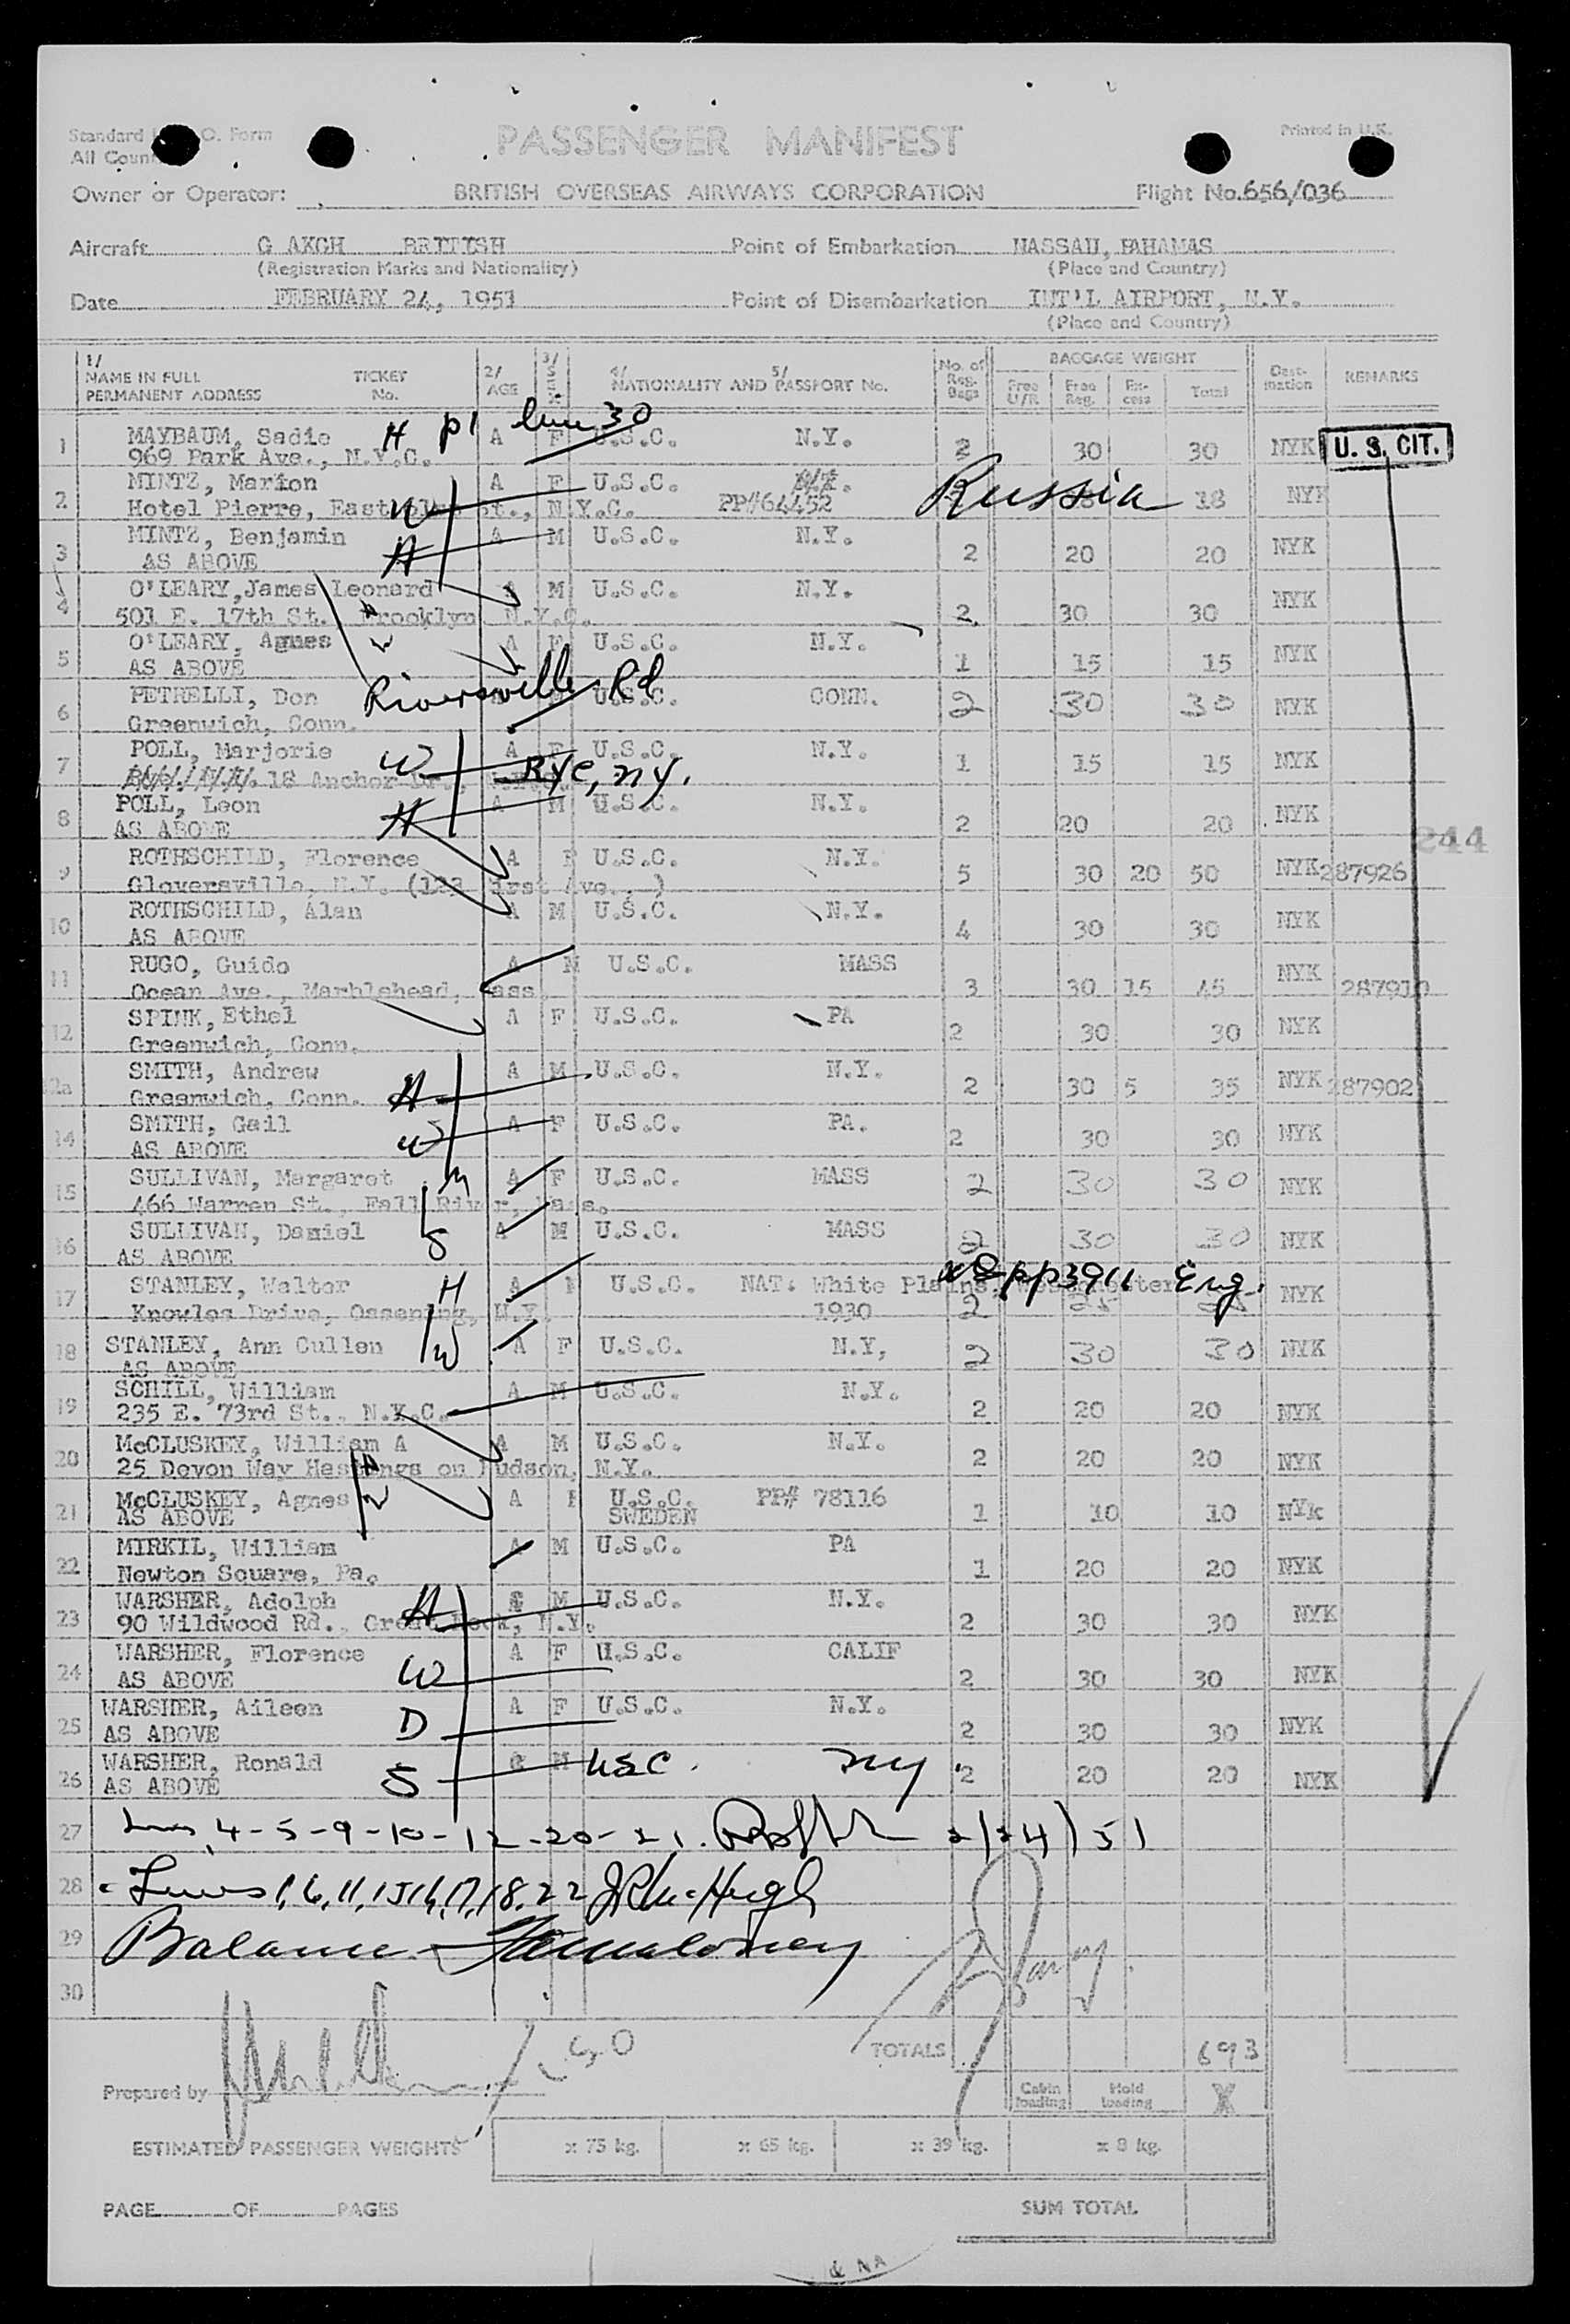 Standard O. Form
All Coun
PASSENGER MANIFEST
Printed in U.K.
Owner or Operator: BRITISH OVERSEAS AIRWAYS CORPORATION Flight No. 656/036
Aircraft G AKGH BRITISH Point of Embarkation NASSAU, BAHAMAS
(Registration Marks and Nationality) (Place and Country)
Date FEBRUARY 24, 1951 Point of Disembarkation INT'L AIRPORT, N.Y.
(Place and Country)
1/ NAME IN FULL PERMANENT ADDRESS TICKET No. 2/ AGE 3/ SEX 4/ 5/ NATIONALITY AND PASSPORT No. No. of Reg. Bags BAGGAGE WEIGHT Free U/R Free Reg. Ex-cess Total Dest-ination REMARKS
1 MAYBAUM, Sadie H p1 30 A F U.S.C. N.Y. 2 30 30 NYK U. S. CIT.
969 Park Ave., N.Y.C.
2 MINTZ, Marion A F U.S.C. Russia 18 NYK
Hotel Pierre, East St., N.Y.C. PP#64452
W
3 MINTZ, Benjamin H A M U.S.C. N.Y. 2 20 20 NYK
AS ABOVE
4 O'LEARY, James Leonard H A M U.S.C. N.Y. 2 30 30 NYK
501 E. 17th St. Brooklyn N.Y.C.
5 O'LEARY, Agnes W A F U.S.C. N.Y. 1 15 15 NYK
AS ABOVE
6 PETRELLI, Don Riversville Rd U.S.C. CONN. 2 30 30 NYK
Greenwich, Conn.
7 POLL, Marjorie W A F U.S.C. N.Y. 1 15 15 NYK
18 Anchor Dr., Rye, ny.
8 POLL, Leon H A M U.S.C. N.Y. 2 20 20 NYK
AS ABOVE
244
9 ROTHSCHILD, Florence A F U.S.C. N.Y. 5 30 20 50 NYK 287926
Gloversville, N.Y. (123 First Ave., )
10 ROTHSCHILD, Alan A M U.S.C. N.Y. 4 30 30 NYK
AS ABOVE
11 RUGO, Guido A M U.S.C. MASS 3 30 15 45 NYK 287910
Ocean Ave., Marblehead, Mass
12 SPINK, Ethel A F U.S.C. PA 2 30 30 NYK
Greenwich, Conn.
12a SMITH, Andrew H A M U.S.C. N.Y. 2 30 5 35 NYK 287902
Greenwich, Conn.
14 SMITH, Gail W A F U.S.C. PA. 2 30 30 NYK
AS ABOVE
15 SULLIVAN, Margaret M A F U.S.C. MASS 2 30 30 NYK
466 Warren St., Fall River, Mass.
16 SULLIVAN, Daniel S A M U.S.C. MASS 2 30 30 NYK
AS ABOVE
17 STANLEY, Walter H A U.S.C. NAT: White Plains, Westchester pp3911 Eng. NYK
Knowles Drive, Ossening, N.Y. 1930 2 25 25
18 STANLEY, Ann Cullen W A F U.S.C. N.Y, 2 30 30 NYK
AS ABOVE
19 SCHILL, William A M U.S.C. N.Y. 2 20 20 NYK
235 E. 73rd St., N.Y.C.
20 McCLUSKEY, William A H A M U.S.C. N.Y. 2 20 20 NYK
25 Devon Way Hastings on Hudson, N.Y.
21 McCLUSKEY, Agnes W A F U.S.C. PP# 78116 1 10 10 NYk
AS ABOVE SWEDEN
22 MIRKIL, William A M U.S.C. PA 1 20 20 NYK
Newton Square, Pa.
23 WARSHER, Adolph H A M U.S.C. N.Y. 2 30 30 NYK
90 Wildwood Rd., Great Neck, N.Y.
24 WARSHER, Florence W A F U.S.C. CALIF 2 30 30 NYK
AS ABOVE
25 WARSHER, Aileen D A F U.S.C. N.Y. 2 30 30 NYK
AS ABOVE
26 WARSHER, Ronald S M USC. ny 2 20 20 NYK
AS ABOVE
27 Lines 4-5-9-10-12-20-21. 2/24/51
28 Lines 1, 6, 11, 15, 16, 17, 18, 22 McHugh
29 Balance
30
TOTALS 693
Prepared by
Cabin loading Hold loading X
ESTIMATED PASSENGER WEIGHTS x 75 kg. x 65 kg. x 39 kg. x 8 kg.
PAGE OF PAGES SUM TOTAL
& NA